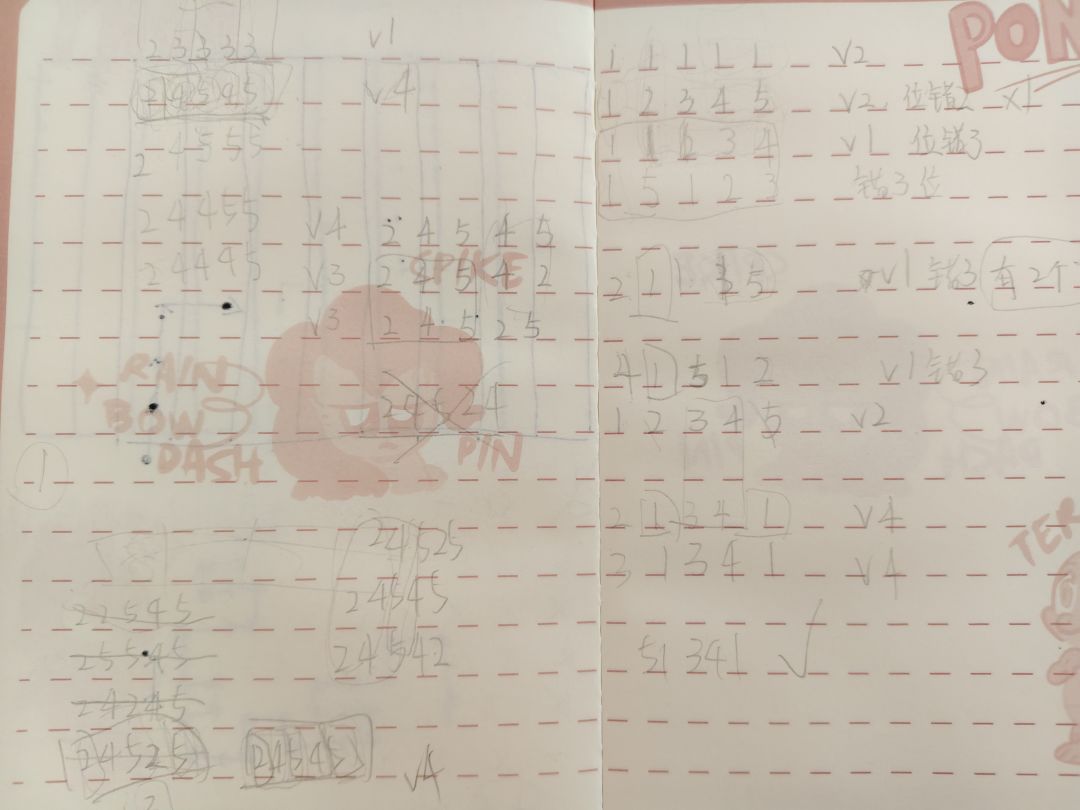 2 3 3 3 3
v1
2 4 5 4 5
v4
2 4 5 5 5
2 4 4 5 5 v4 2 4 5 4 5
2 4 4 4 5 v3 2 4 5 4 2
v3 2 4 5 2 5
SPIKE
RAIN
BOW
DASH
2 4 5 2 4
PIN
1
24525
22545 24545
25545 24542
24245
24525 24545 v4
PON
1 1 1 1 1 v2
1 2 3 4 5 v2 位错2 x1
1 1 2 3 4 v1 位错3
1 5 1 2 3 错3位
2 1 1 5 v1错3 有2个
4 1 5 1 2 v1错3
1 2 3 4 5 v2
2 1 3 4 1 v4
3 1 3 4 1 v4
TER
51 341 √